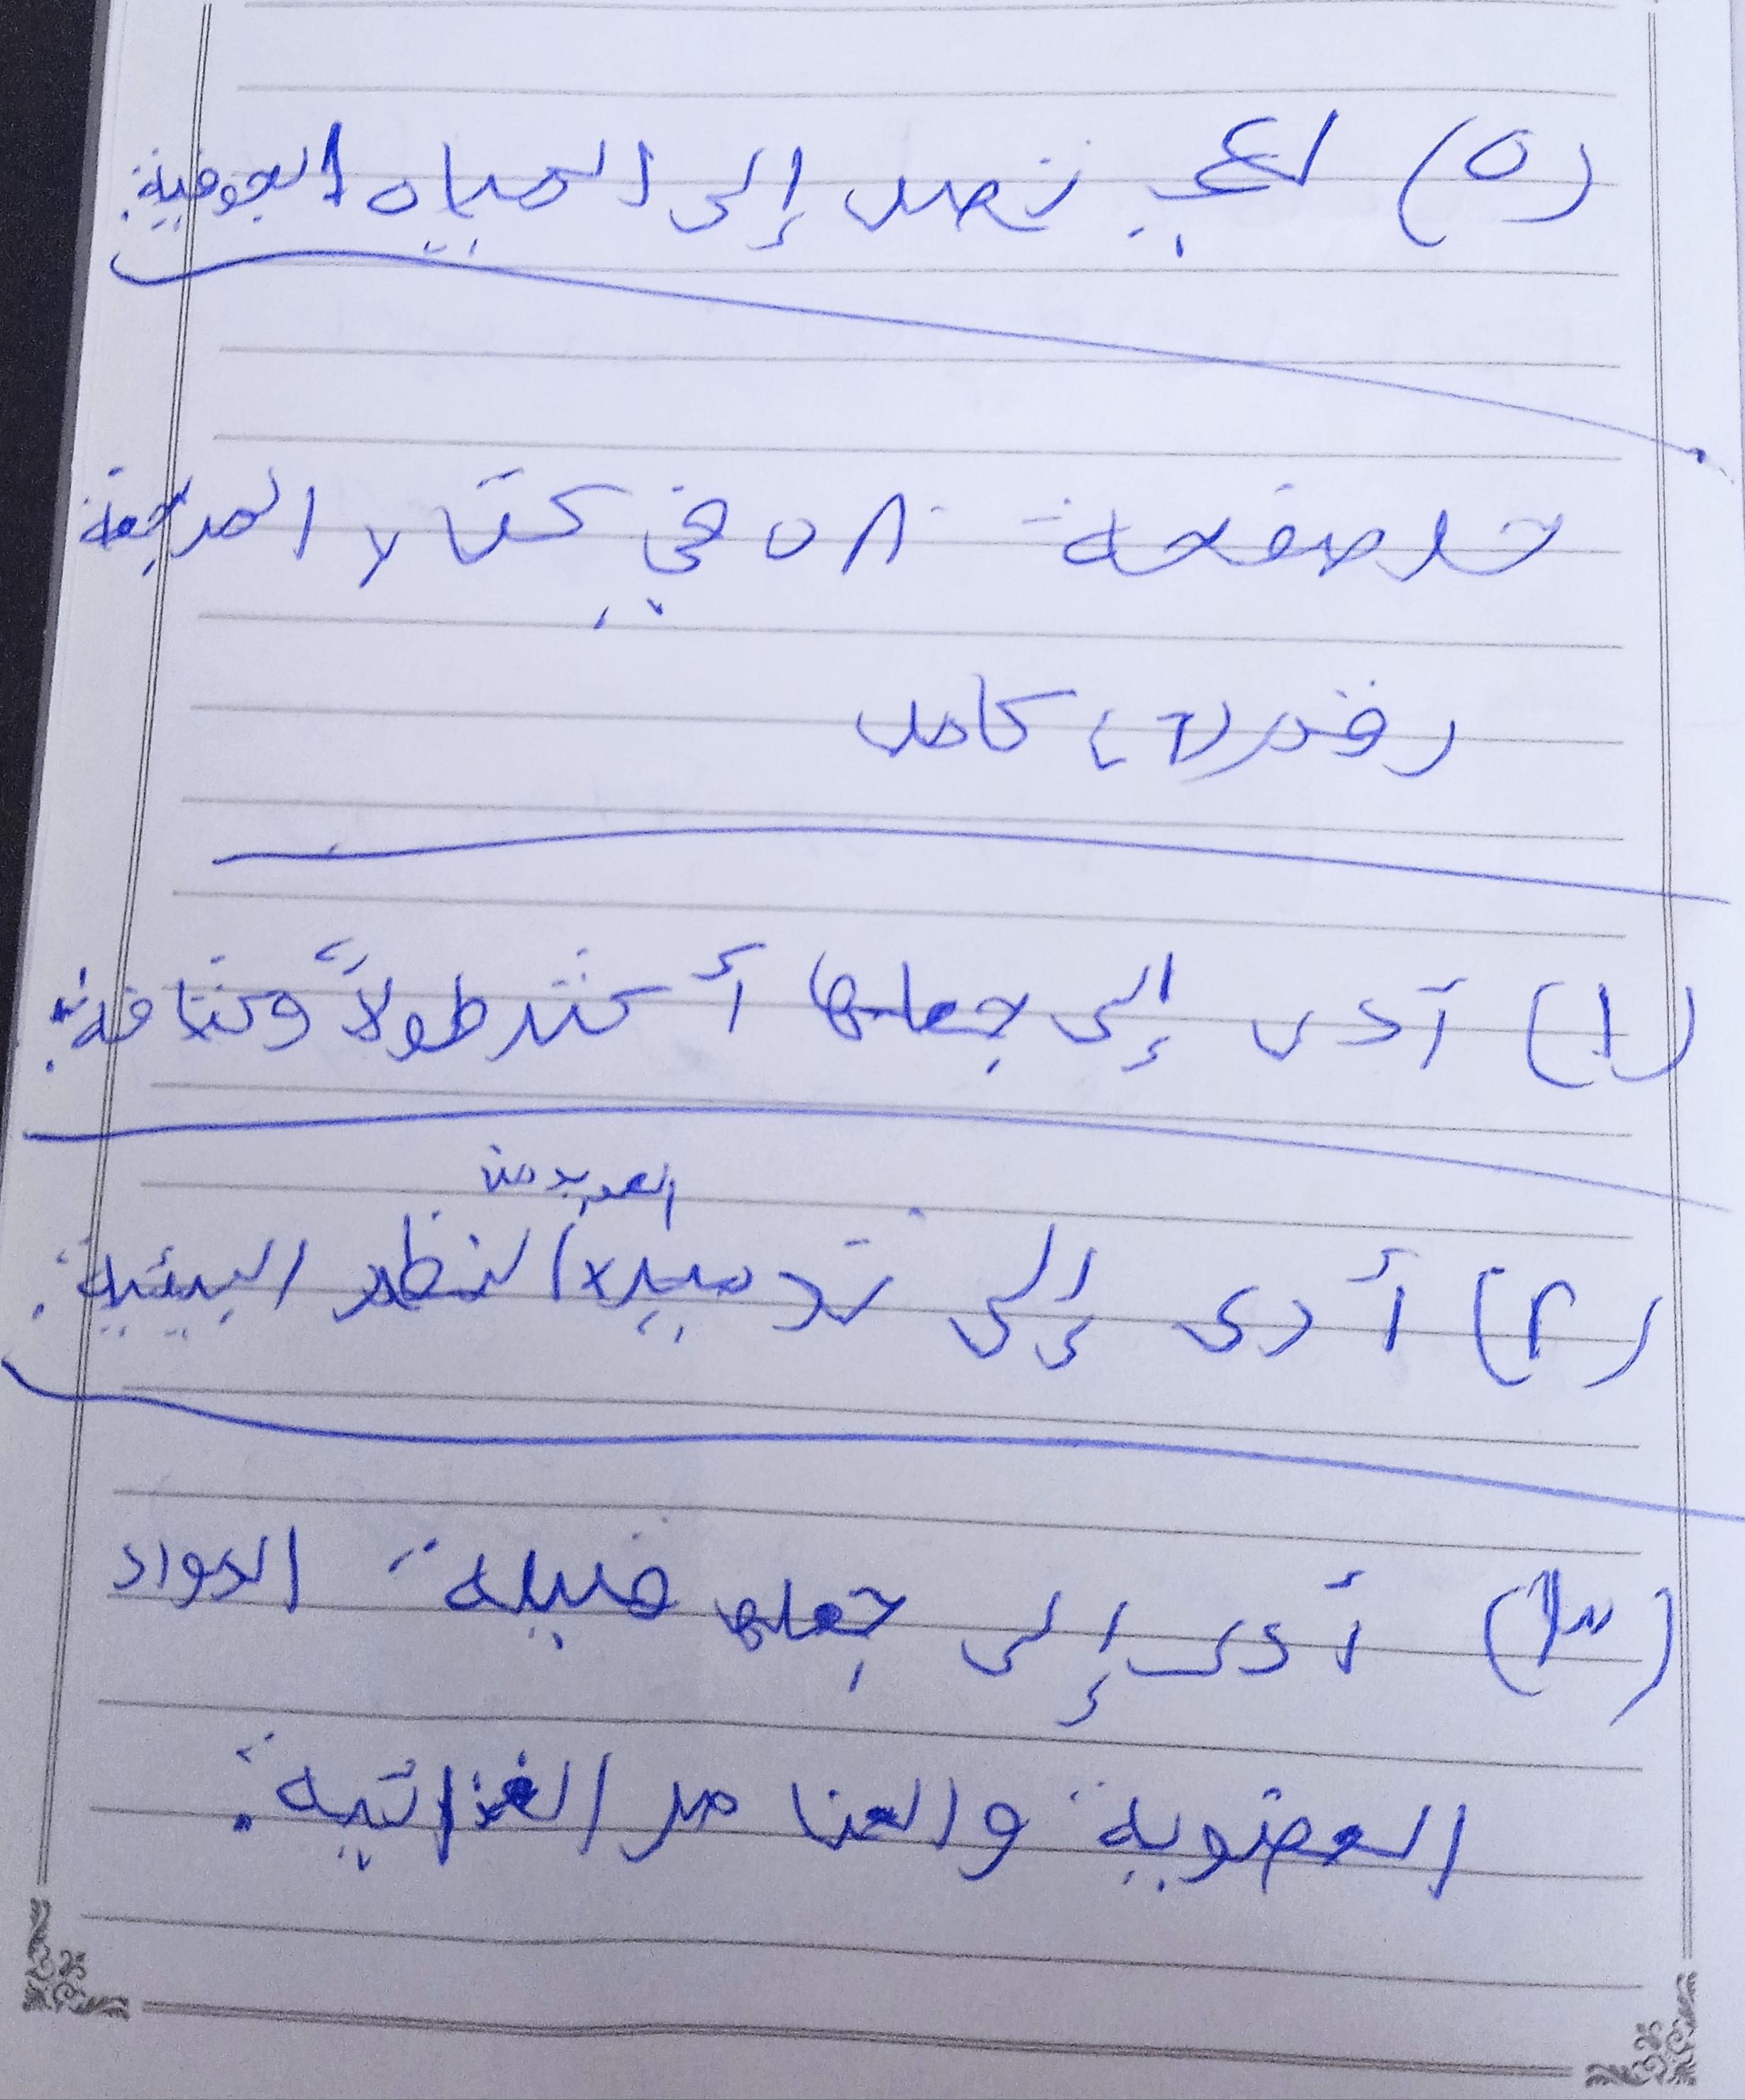 (٥) لكي تصل إلى المياه الجوفية.
حل صفحة ٥٨ في كتاب المراجعة
رقم (٦) كامل
(١) أدى إلى جعلها أكثر طولاً وكثافة.
العديد من
(٢) أدى إلى تدمير x النظم البيئية.
(٣) أدى إلى جعلها ضئيلة المواد
العضوية والعناصر الغذائية.